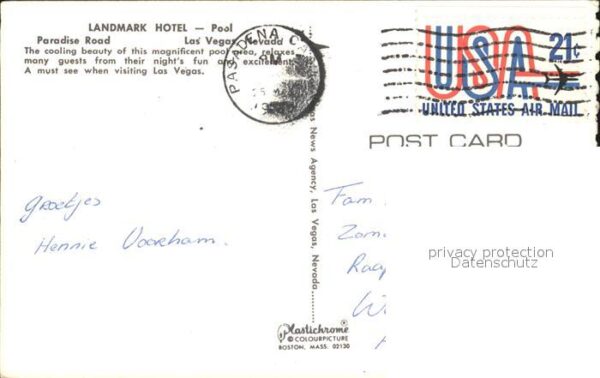 LANDMARK HOTEL — Pool
Paradise Road Las Vegas, Nevada
The cooling beauty of this magnificent pool area, relaxes
many guests from their night's fun and excitement.
A must see when visiting Las Vegas.
PASADENA
USA 21¢
UNITED STATES AIR MAIL
POST CARD
Groetjes
Hennie Voorham.
Fam.
News Agency, Las Vegas, Nevada
privacy protection
Datenschutz
Plastichrome®
© COLOURPICTURE
BOSTON, MASS. 02130